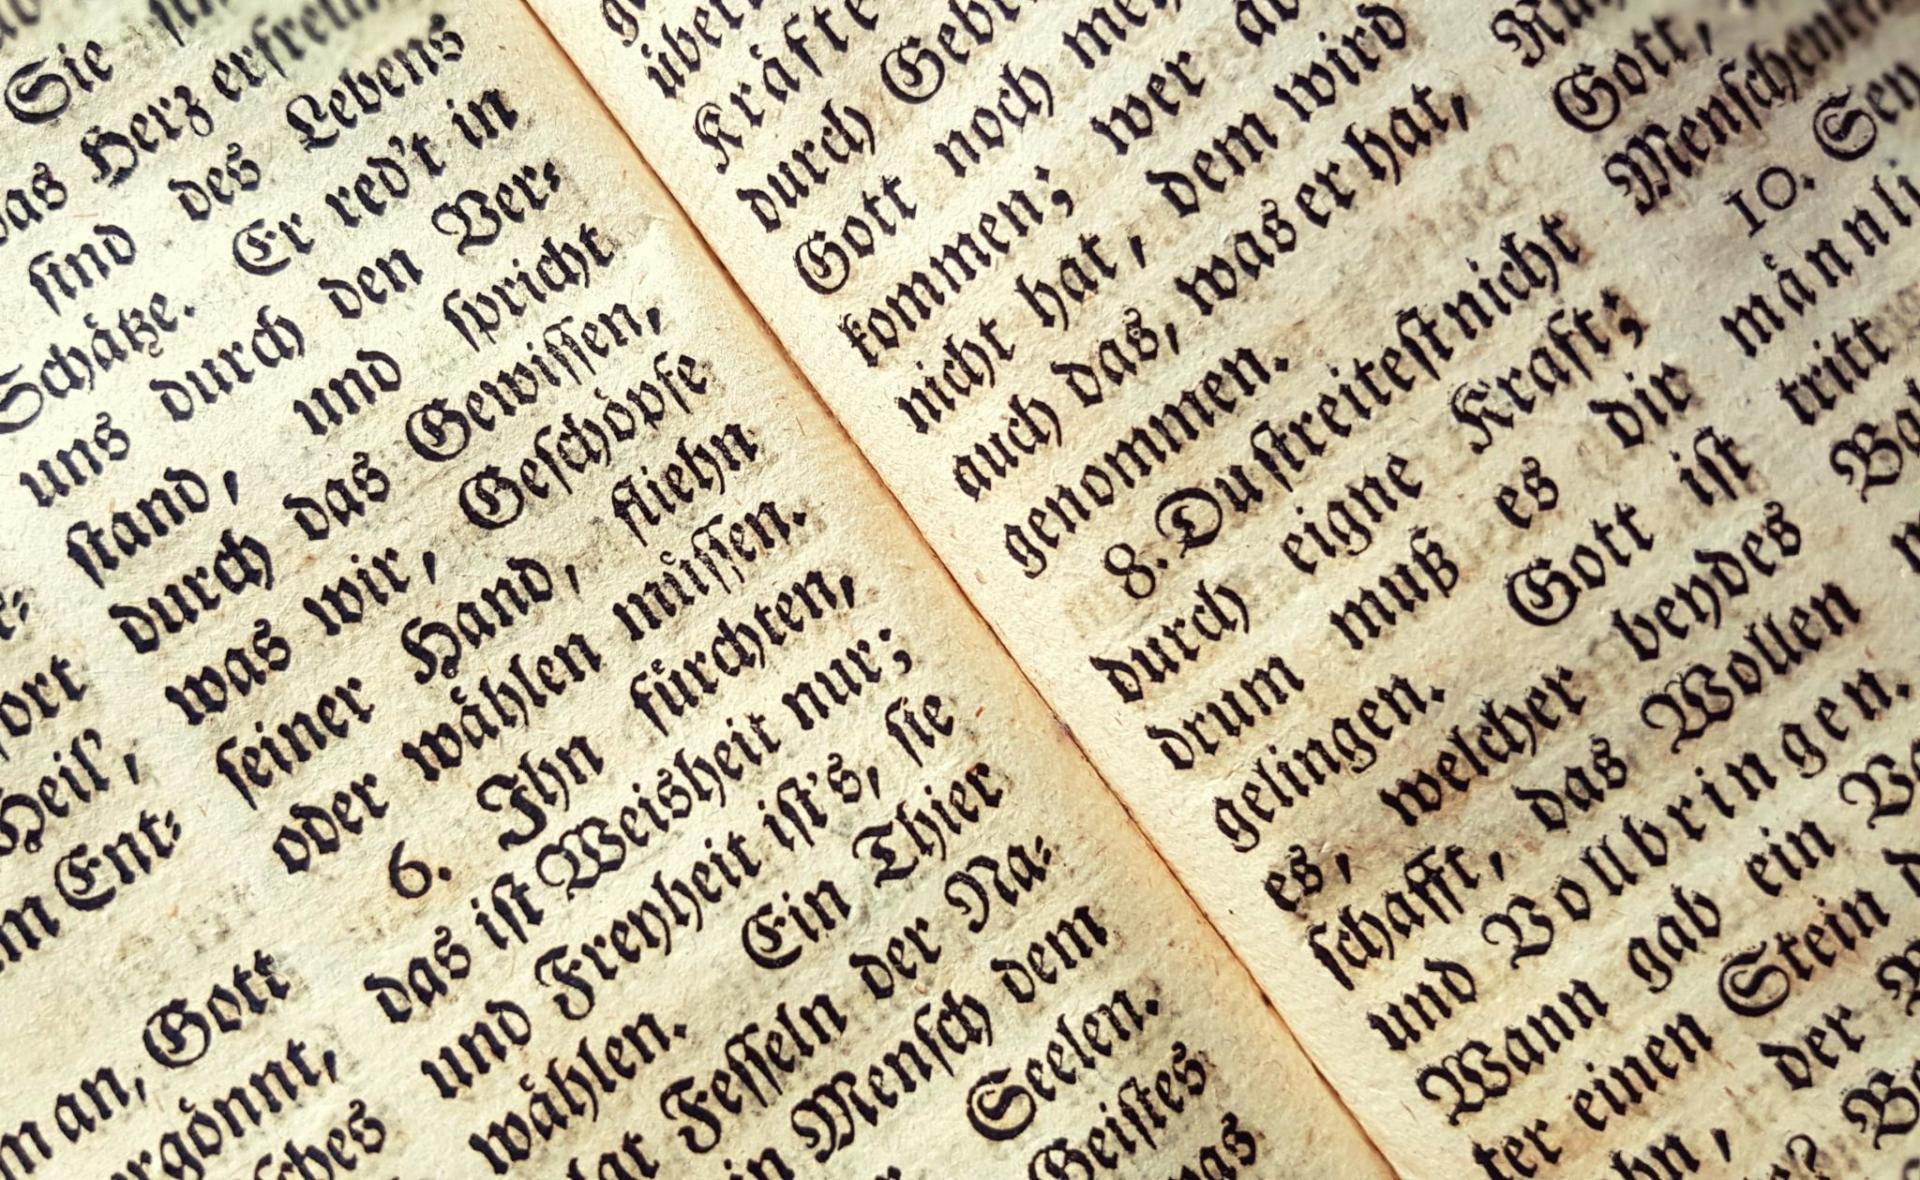 Sie
das Herz erfreun
sind des Lebens
Schätze. Er red't in
uns durch den Ver-
stand, und spricht
durch das Gewissen,
was wir, Geschöpfe
seiner Hand, fliehn
oder wählen müssen.
6. Ihn fürchten,
das ist Weisheit nur;
und Freyheit ist's, sie
wählen. Ein Thier
Fesseln der Na-
Mensch dem
Seelen.
Geistes
ort
Heil',
Ent-
an, Gott
Kräfte
durch
Gott noch
kommen; wer
nicht hat, dem wird
auch das, was er hat,
genommen.
8. Du streitest nicht
durch eigne Kraft;
drum muß es dir
gelingen. Gott ist
es, welcher beydes
schafft, das Wollen
und Vollbringen.
Wann gab ein
einen Stein
der
Gott,
10.
tritt